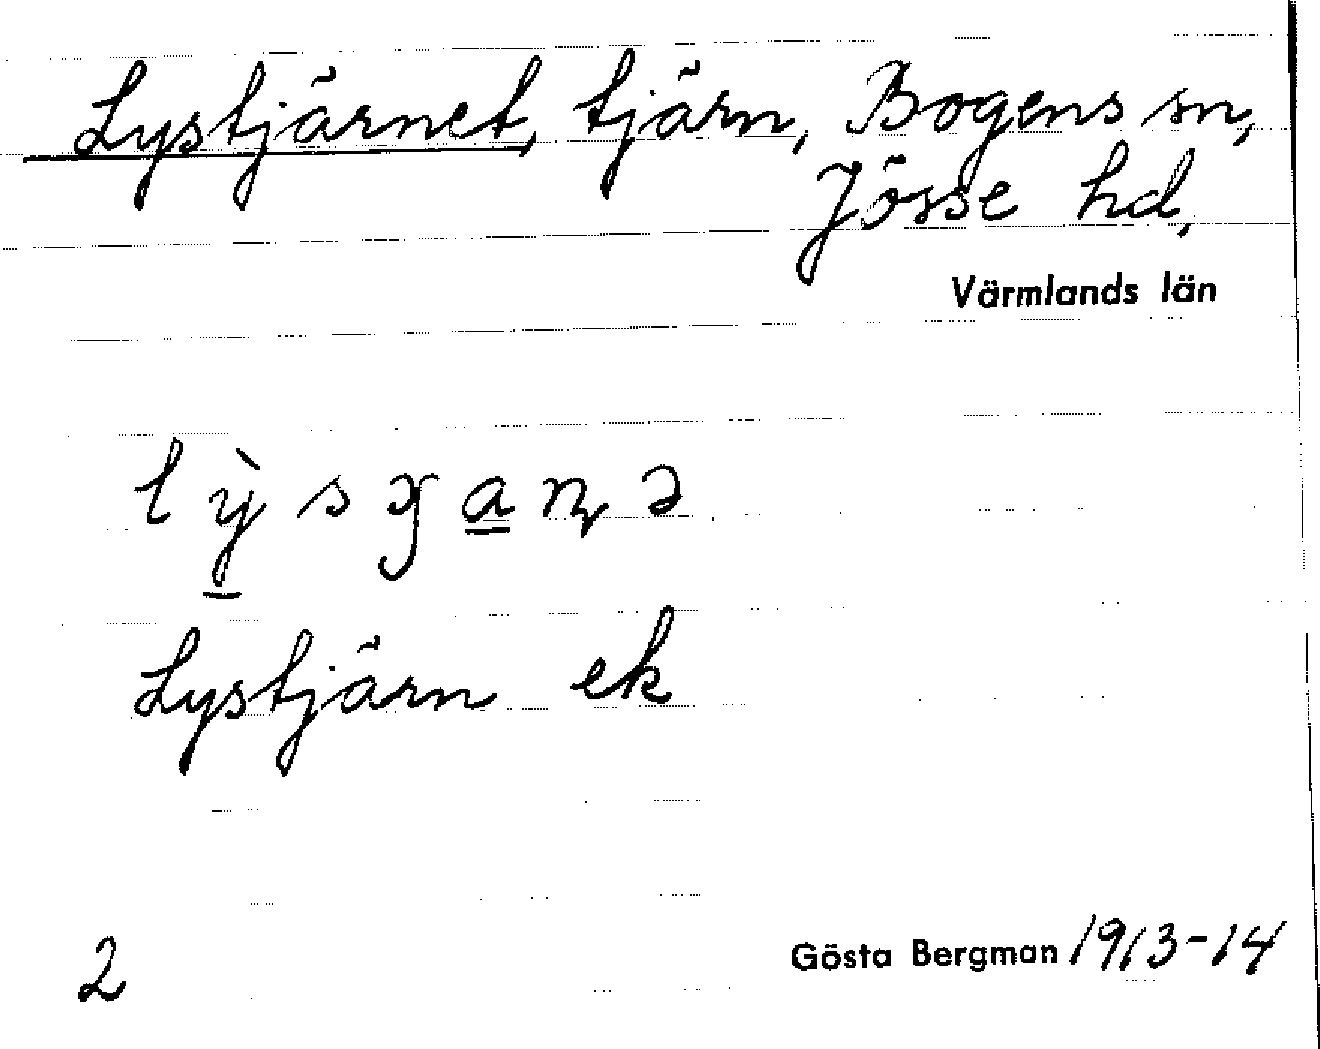 Lystjärnet, tjärn, Bogens sn,
Jösse hd,
Värmlands län
lỳsɟa̲ɳə
Lystjärn ek
2
Gösta Bergman 1913-14